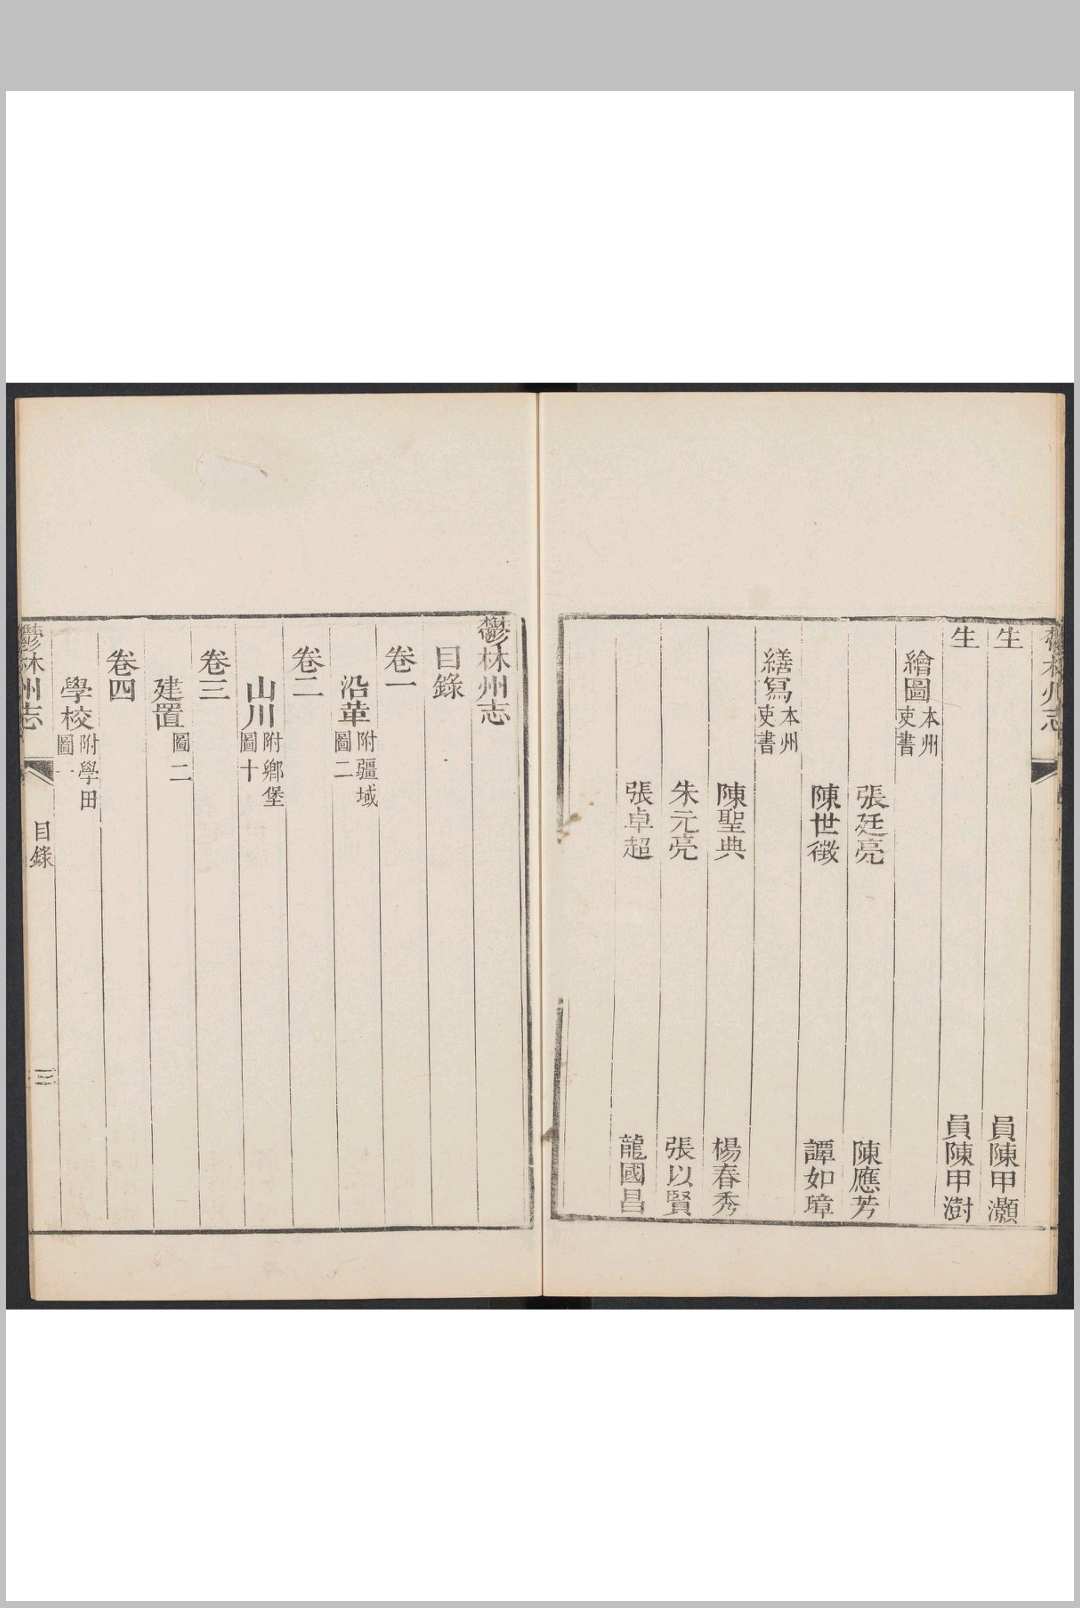 生 員陳甲灝
生 員陳甲澍
繪圖本州吏書
張廷亮 陳應芳
陳世徵 譚如璋
繕寫本州吏書
陳聖典 楊春秀
朱元亮 張以賢
張卓超 龍國昌
鬱林州志
目錄
卷一
沿革附疆域圖二
卷二
山川附鄉堡圖十
卷三
建置圖二
卷四
學校附學田圖一
鬱林州志 目錄 三